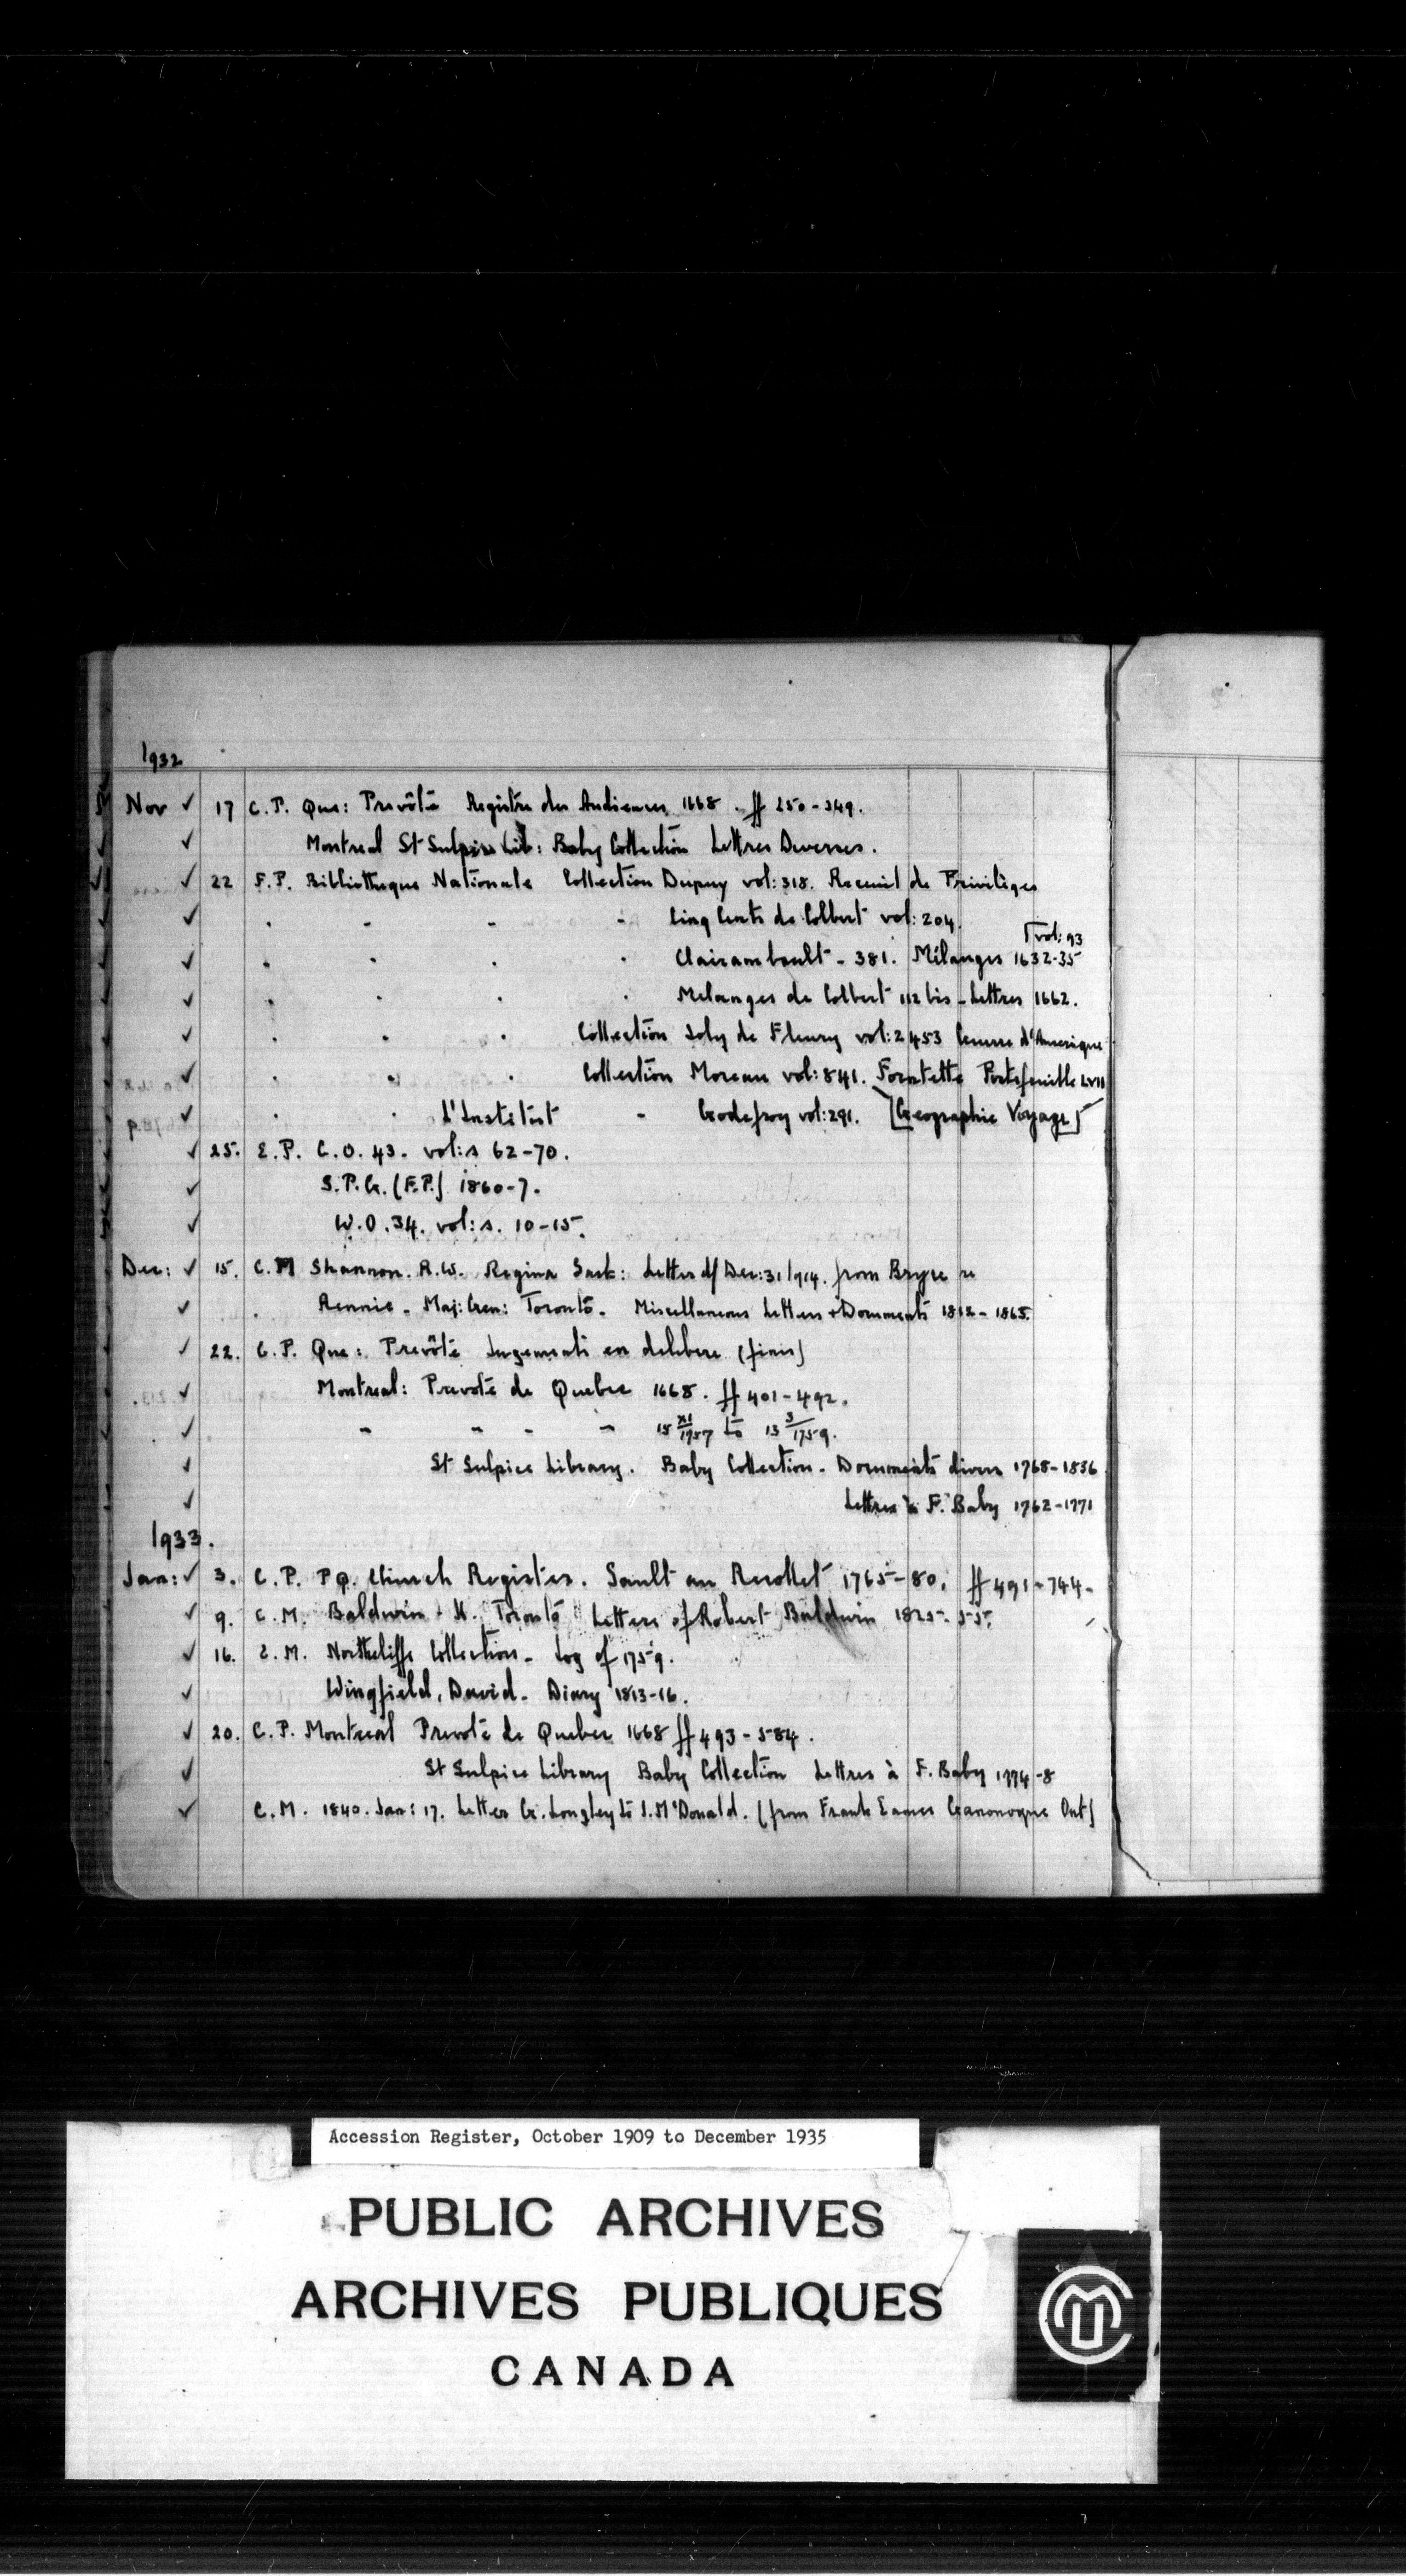 1932
Nov ✓ 17 C.P. Que: Prevôté Registre des Audiences 1668. ff 250-349.
✓ Montreal St Sulpice Lib: Baby Collection Lettres Diverses.
✓ 22 F.P. Bibliotheque Nationale Collection Dupuy vol: 318. Recueil de Privilèges
✓ . - - - Cinq Cents de Colbert vol: 204.
vol: 93
✓ . . . . Clairambault - 381. Mélanges 1632-35
✓ . . . . Melanges de Colbert 112 bis - Lettres 1662.
✓ . . . Collection Joly de Fleury vol: 2453 d'Amerique
✓ . . . Collection Moreau vol: 841. Fontette Portefeuille LVII
✓ . . L'Institut - Godefroy vol: 291. [Geographie Voyage]
✓ 25. E.P. C.O. 43. vol:s 62-70.
✓ S.P.G. (F.P.) 1860-7.
✓ W.O. 34. vol:s. 10-15.
Dec: ✓ 15. C.M Shannon. R.W. Regina Sask: Letter d/ Dec: 31/914. from Bryce re
✓ . Rennie - Maj: Gen: Toronto. Miscellaneous Letters & Documents 1812-1865.
✓ 22. C.P. Que: Prevôté Jugements en delibere (fin)
✓ Montreal: Prevoté de Quebec 1668. ff 401-492.
✓ - - - - 15 XI/1757 to 13 3/1759.
✓ St Sulpice Library. Baby Collection - Documents divers 1765-1836
✓ Lettres à F. Baby 1762-1771
1933.
Jan: ✓ 3. C.P. P.Q. Church Register. Sault au Recollet 1765-80. ff 491-744-
✓ 9. C.M. Baldwin - Toronto Letters of Robert Baldwin 1825-55.
✓ 16. C.M. Northcliffe Collection - Log of 1759.
✓ Wingfield, David - Diary 1813-16.
✓ 20. C.P. Montreal Prevoté de Quebec 1668 ff 493-584.
✓ St Sulpice Library Baby Collection Lettres à F. Baby 1774-8
✓ C.M. 1840. Jan: 17. Letter G. Longley to J. McDonald. (from Frank Eames Gananoque Ont)
Accession Register, October 1909 to December 1935
PUBLIC ARCHIVES
ARCHIVES PUBLIQUES
CANADA